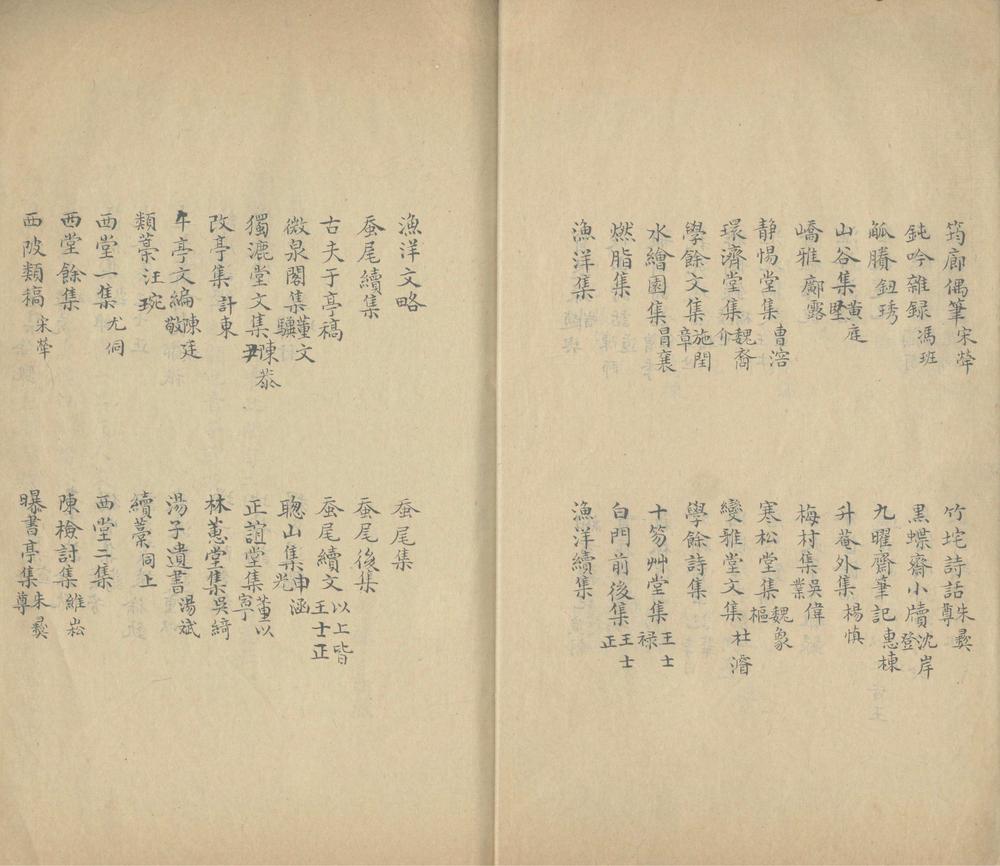 筠廊偶筆宋犖
竹垞詩話朱彝尊
鈍吟雜録馮班
黒蝶齋小牘沈岸登
觚賸鈕琇
九曜齋筆記惠棟
山谷集黄庭堅
升菴外集楊慎
嶠雅鄺露
梅村集吳偉業
静惕堂集曹溶
寒松堂集魏象樞
環濟堂集魏裔介
變雅堂文集杜濬
學餘文集施閏章
學餘詩集
水繪園集冒襄
十笏艸堂集王士禄
燃脂集
白門前後集王士正
漁洋集
漁洋續集
漁洋文略
蚕尾集
蚕尾續集
蚕尾後集
古夫于亭稿
蚕尾續文以上皆王士正
微泉閣集董文驥
聰山集申涵光
獨漉堂文集陳恭尹
正誼堂集董以寧
改亭集計東
林蕙堂集吳綺
午亭文編陳廷敬
湯子遺書湯斌
類藁汪琬
續藁同上
西堂一集尤侗
西堂二集
西堂餘集
陳檢討集維崧
西陂類稿宋犖
曝書亭集朱彝尊